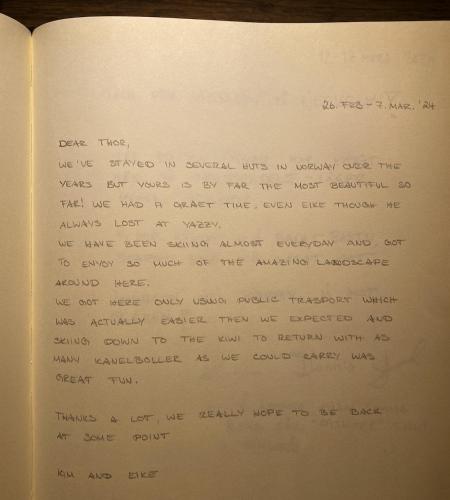 26. FEB - 7. MAR. '24
DEAR THOR,
WE'VE STAYED IN SEVERAL HUTS IN NORWAY OVER THE
YEARS BUT YOURS IS BY FAR THE MOST BEAUTIFUL SO
FAR! WE HAD A GRAET TIME, EVEN EIKE THOUGH HE
ALWAYS LOST AT YAZZY.
WE HAVE BEEN SKIING ALMOST EVERYDAY AND GOT
TO ENYOY SO MUCH OF THE AMAZING LANDSCAPE
AROUND HERE.
WE GOT HERE ONLY USING PUBLIC TRASPORT WHICH
WAS ACTUALLY EASIER THEN WE EXPECTED AND
SKIING DOWN TO THE KIWI TO RETURN WITH AS
MANY KANELBOLLER AS WE COULD CARRY WAS
GREAT FUN.
THANKS A LOT, WE REALLY HOPE TO BE BACK
AT SOME POINT
KIM AND EIKE